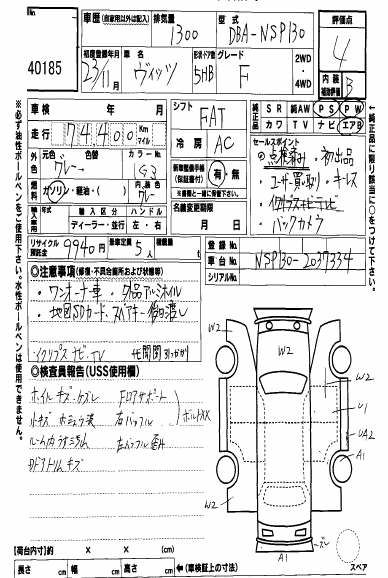 40185
車歴 (自家用以外は記入)
排気量
1300
型式
DBA-NSP130
評価点
4
初度登録年月
23/11月
車名
ヴィッツ
形状・ドア数
5HB
グレード
F
2WD・4WD
内装補助評価
B
※必ず油性ボールペンをご使用下さい。水性ボールペンは使用できません。
車検 年 月
走行 74,400 Km マイル
外色
グレー
色替
カラーNo.
1G3
燃料
ガソリン・軽油・( )
内装色
グレー
輸入車用
輸入区分
ハンドル
ディーラー・並行
左・右
リサイクル預託金
9940 円
乗車定員
5 人
積載量
シフト
FAT
冷房
AC
新車整備手帳(保証書付)
有・無
※後日発送はご遠慮下さい。
名義変更期限
月 日
純正品
SR 純AW PS PW
カワ TV ナビ エアB
セールスポイント
・点検済み ・初出品
・ユーザー買取り ・キーレス
・イクリプスナビTV
・バックカメラ
←純正品に限り該当に○をつけて下さい。
登録No.
車台No.
NSP130-2037334
シリアルNo.
◎注意事項 (修復・不具合箇所および状態等)
・ワンオーナー車 ・外品アルミホイル
・地図SDカード、スペアキー後日渡し
イクリプスナビ、TV
◎検査員報告(USS使用欄)
ホイルキズ・ケズレ
Fロアサポート
小キズ
右バッフル
ボルトXX
ルーム内うすごみ
Dドアトリムキズ
W2
W2
W2
U1
UA2
A1
W2
W2
A1
スペア
【荷台内寸】約 × × (cm)
長さ cm 幅 cm 高さ cm ←(車検証上の寸法)